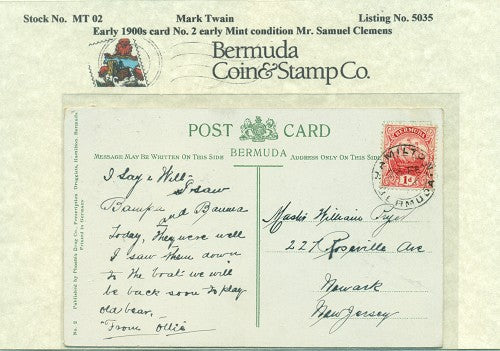 Stock No. MT 02 Mark Twain Listing No. 5035
Early 1900s card No. 2 early Mint condition Mr. Samuel Clemens
Bermuda
Coin&Stamp Co.
POST CARD
BERMUDA
MESSAGE MAY BE WRITTEN ON THIS SIDE
ADDRESS ONLY ON THIS SIDE
BERMUDA
1d 1d
HAMILTON
BERMUDA
I say a Will
I saw
Bampa and Banma
Today, They were well
I saw them down
to the boat we will
be back soon to play
old bear,
"From Ollie
Master William
227 Roseville Ave
Newark
New Jersey
No. 2 Published by Phoenix Drug Co., Proprietor's Druggists, Hamilton, Bermuda.
Printed in Germany